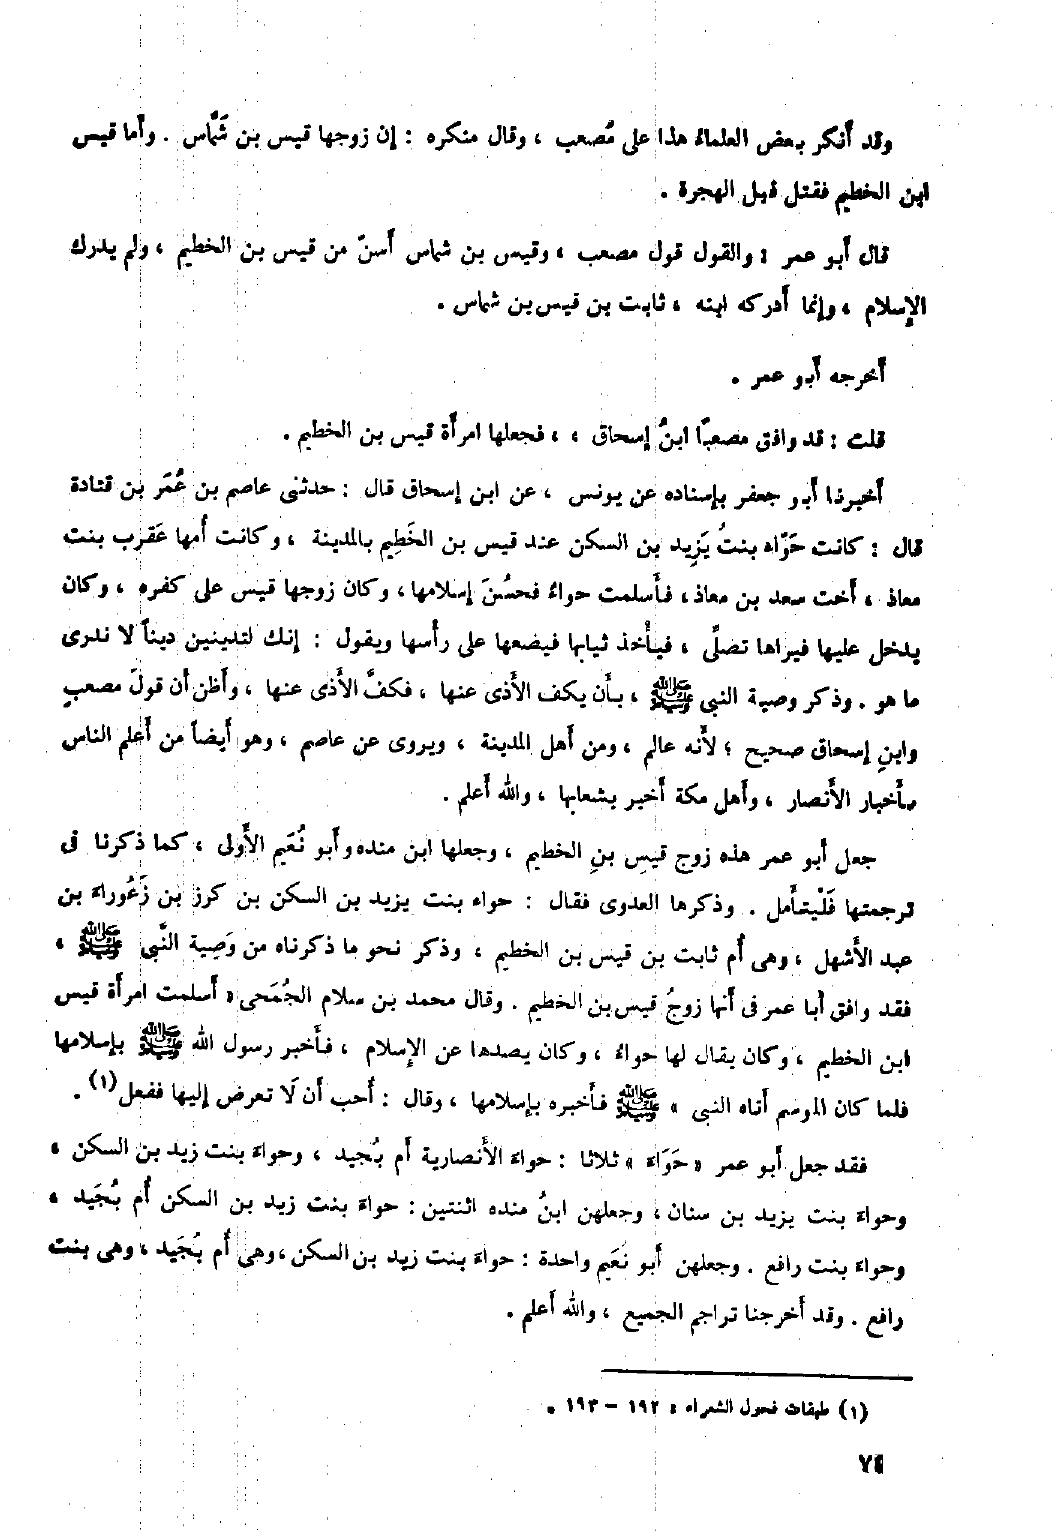 وقد أَنكر بعض العلماءُ هذا على مُصعب ، وقال منكره : إن زوجها قيس بن شَمَّاس . وأَما قيس
ابن الخطيم فقتل قبل الهجرة .
قال أَبو عمر : والقول قول مصعب ، وقيس بن شماس أَسنّ من قيس بن الخطيم ، ولم يدرك
الإِسلام ، وإِنما أَدركه ابنه ، ثابت بن قيس بن شماس .
أَخرجه أَبو عمر .
قلت : قد وافق مصعبًا ابنُ إِسحاق ، ، فجعلها امرأَة قيس بن الخطيم .
أَخبرنا أَبو جعفر بإِسناده عن يونس ، عن ابن إِسحاق قال : حدثنى عاصم بن عُمَر بن قتادة
قال : كانت حَوَّاء بنتُ يَزِيد بن السكن عند قيس بن الخَطِيم بالمدينة ، وكانت أُمها عَقرب بنت
معاذ ، أَخت سعد بن معاذ ، فأَسلمت حواءُ فحسُنَ إِسلامها ، وكان زوجها قيس على كفره ، وكان
يدخل عليها فيراها تصلِّى ، فيأْخذ ثيابها فيضعها على رأْسها ويقول : إِنك لتدينين ديناً لا ندرى
ما هو . وذكر وصية النبى ﷺ ، بأَن يكف الأَذى عنها ، فكفَّ الأَذى عنها ، وأَظن أَن قولَ مصعبٍ
وابنِ إِسحاق صحيح ؛ لأَنه عالم ، ومن أَهل المدينة ، ويروى عن عاصم ، وهو أَيضاً من أَعلم الناس
بأَخبار الأَنصار ، وأَهل مكة أَخبر بشعابها ، والله أَعلم .
جعل أَبو عمر هذه زوج قيسِ بنِ الخطيم ، وجعلها ابن منده وأَبو نُعَيم الأُولى ، كما ذكرنا فى
ترجمتها فَلْيتأَمل . وذكرها العدوى فقال : حواء بنت يزيد بن السكن بن كرز بن زَعُوراءَ بن
عبد الأَشهل ، وهى أُم ثابت بن قيس بن الخطيم ، وذكر نحو ما ذكرناه من وَصِية النَّبى ﷺ ،
فقد وافق أَبا عمر فى أَنها زوجُ قيس بن الخطيم . وقال محمد بن سلام الجُمَحى « أَسلمت امرأَة قيس
ابن الخطيم ، وكان يقال لها حواءُ ، وكان يصدها عن الإِسلام ، فأَخبر رسول الله ﷺ بإِسلامها
فلما كان الموسم أَتاه النبى » ﷺ فأَخبره بإِسلامها ، وقال : أُحب أَن لَا تعرض إِليها ففعل (١) .
فقد جعل أَبو عمر « حَوَاءَ » ثلاثا : حواءَ الأَنصارية أُم بُجيد ، وحواءَ بنت زيد بن السكن ،
وحواءَ بنت يزيد بن سنان ، وجعلهن ابنُ منده اثنتين : حواءَ بنت زيد بن السكن أُم بُجَيد ،
وحواءَ بنت رافع . وجعلهن أَبو نَعَيم واحدة : حواءَ بنت زيد بن السكن ، وهى أُم بُجَيد ، وهى بنت
رافع . وقد أَخرجنا تراجم الجميع ، والله أَعلم .
(١) طبقات فحول الشعراء : ١٩٢ - ١٩٣ .